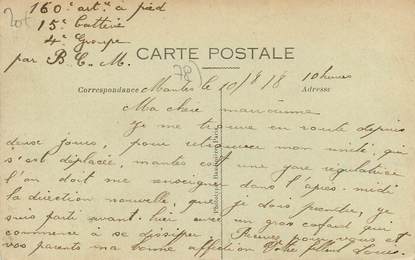 160e artie à pied
15e batterie
4e Groupe
par B. C. M.
78
CARTE POSTALE
Correspondance
Adresse
Mantes le 10/8/18 10 heures
Ma chère marraine
Je me trouve en route depuis
deux jours, pour retrouver mon unité qui
s'est déplacée, mantes est une gare régulatrice
l'on doit me renseigner dans l'après-midi
la direction nouvelle, que je dois prendre, je
suis parti avant-hier avec un gros cafard qui
commence à se dissiper. Recevez pour vous et
vos parents ma bonne affection Votre filleul Louis